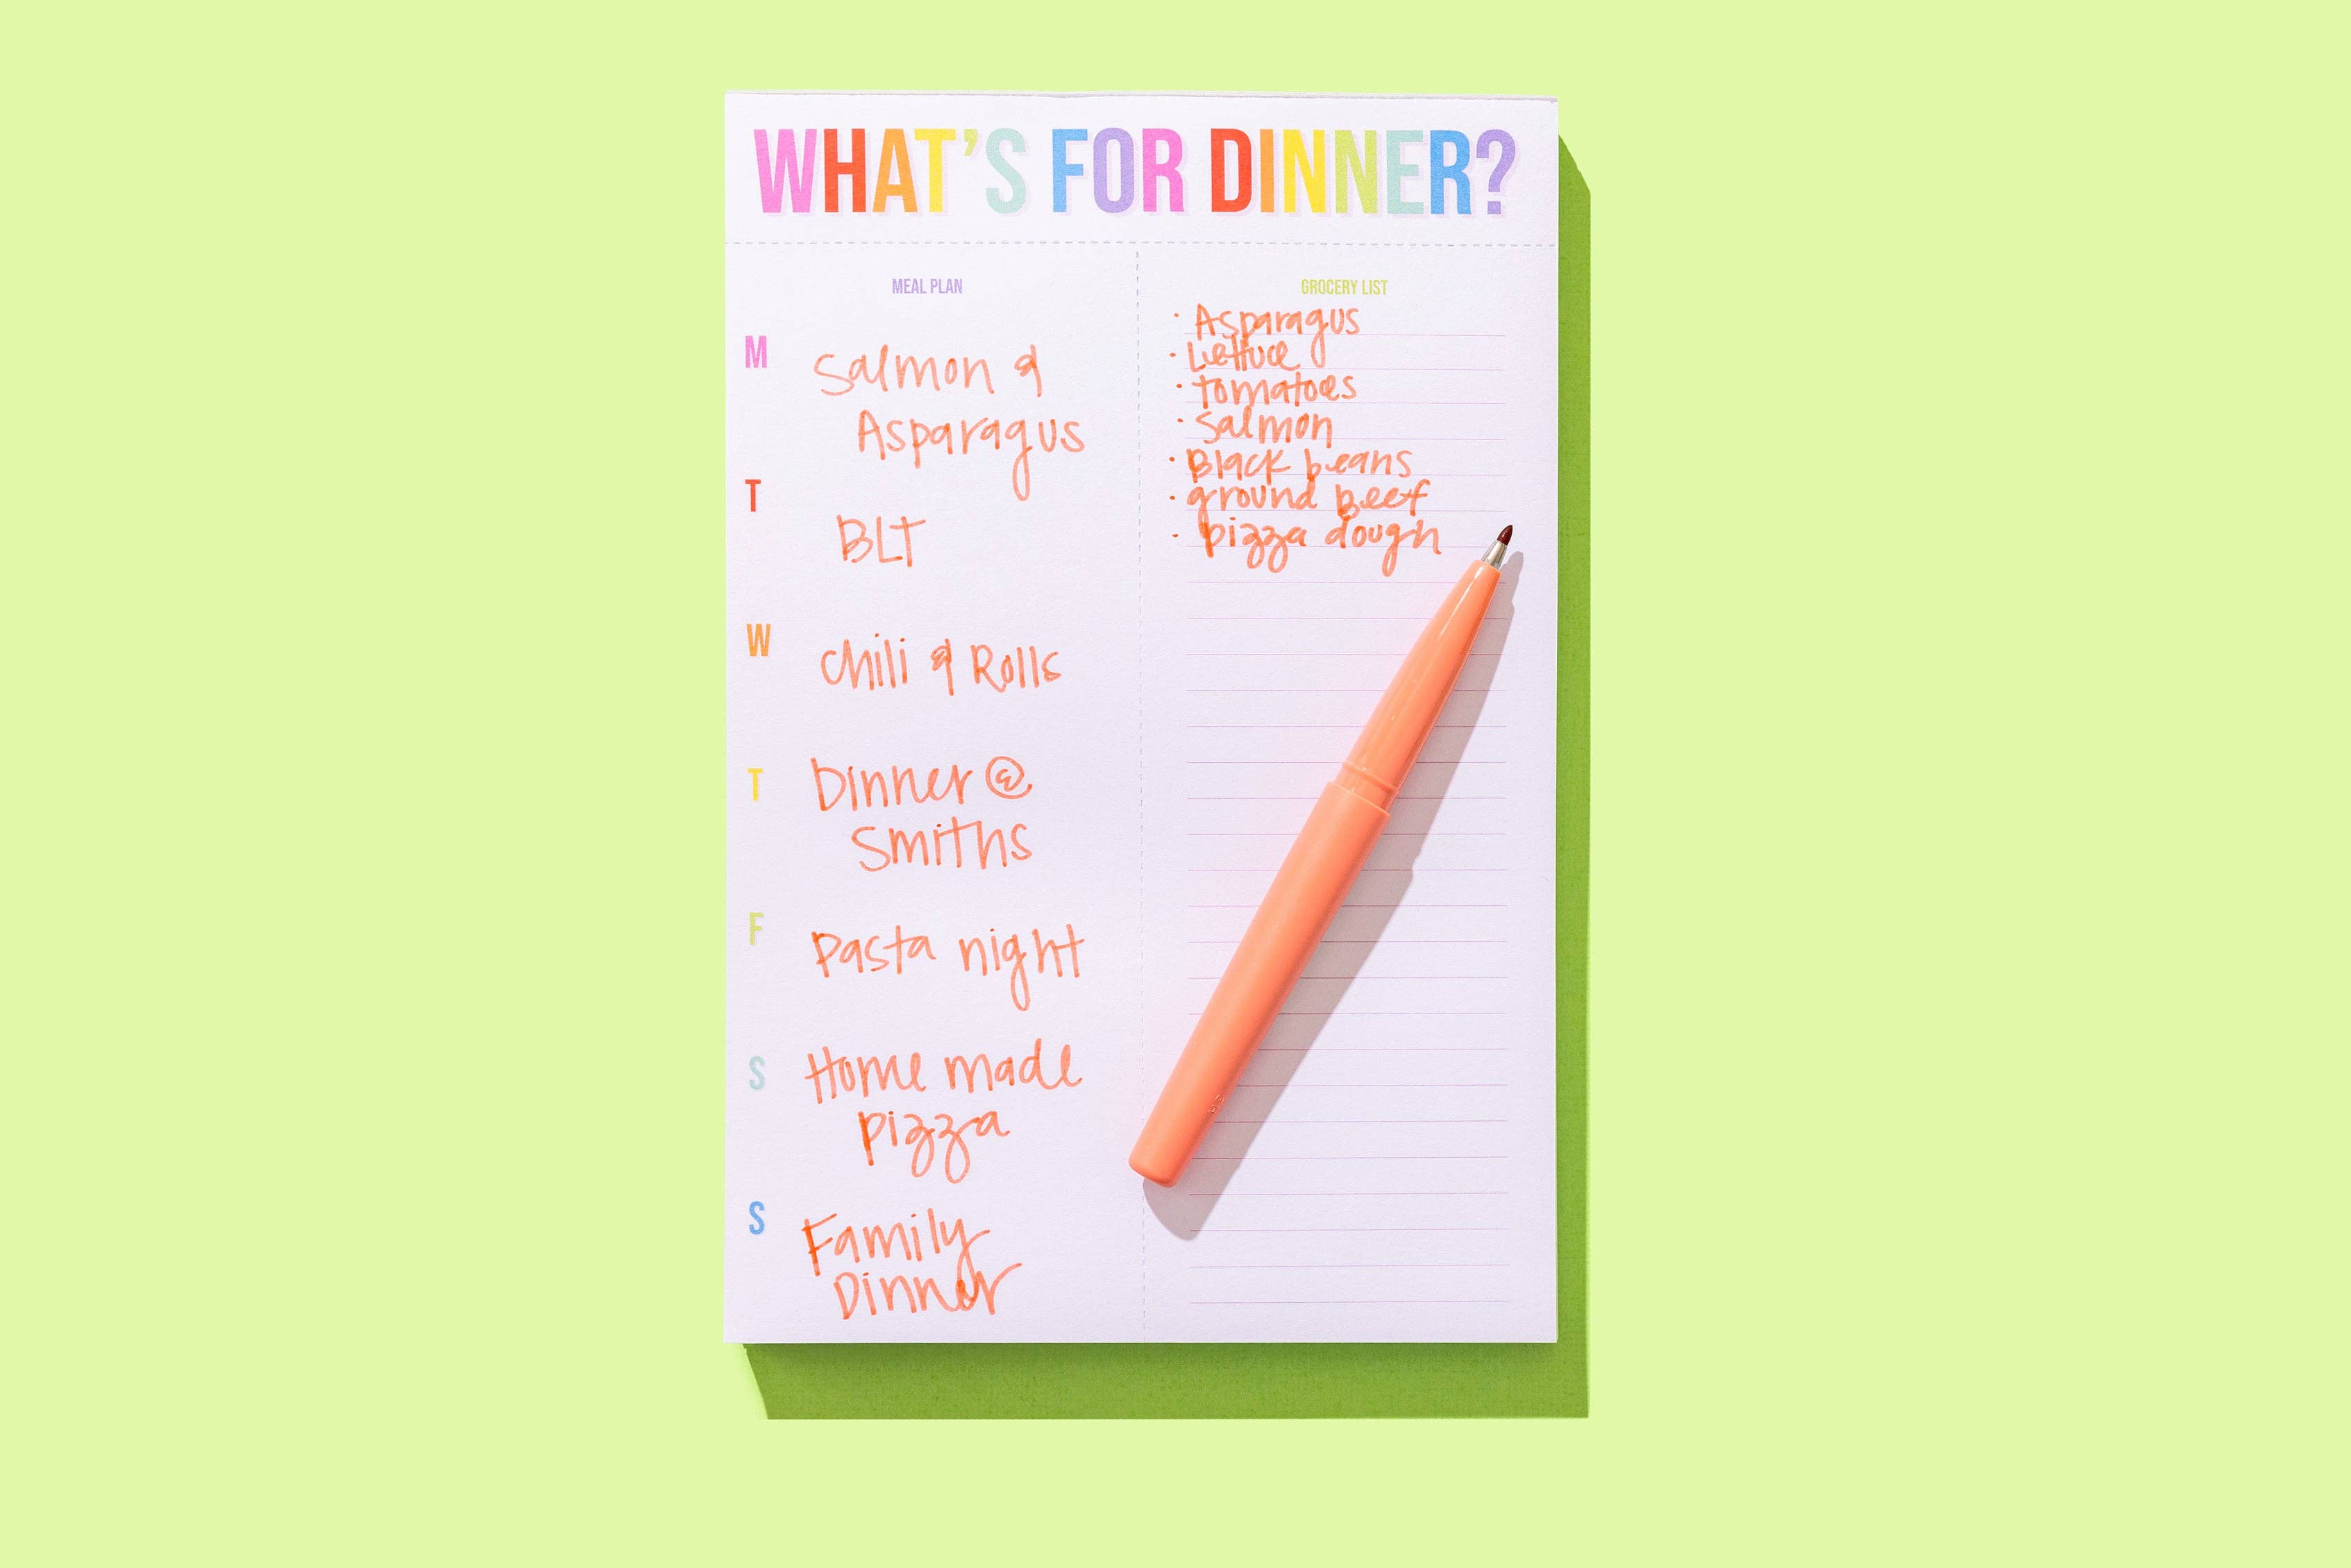 WHAT'S FOR DINNER?
MEAL PLAN
M
Salmon &
Asparagus
T
BLT
W
Chili & Rolls
T
Dinner @
Smiths
F
Pasta night
S
Home made
pizza
S
Family
Dinner
GROCERY LIST
· Asparagus
· Lettuce
· tomatoes
· Salmon
· Black beans
· ground beef
· pizza dough